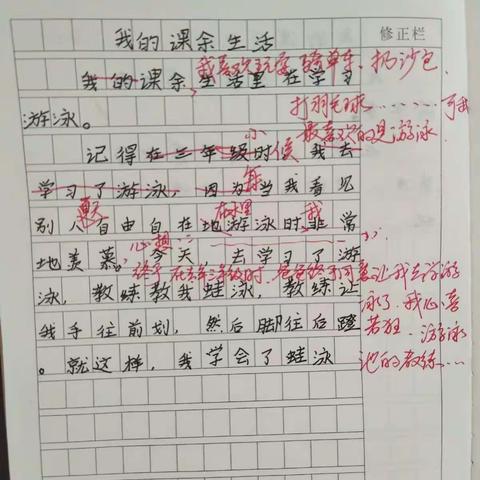 修正栏
我的课余生活
我的课余生活里在学习
我喜欢玩耍骑单车、扔沙包、
游泳。
打羽毛球…………可我
最喜欢的是游泳
记得在三年级时候我去
小
学习了游泳，因为当我看见
每
别人自由自在地游泳时非常
在水里
我
地羡慕。今天，去学习了游
心想：
终于在三年级时，爸爸终于同意让我去学游
泳，教练教我蛙泳，教练让
泳了。我心喜
我手往前划，然后脚往后蹬
若狂，游泳
。就这样，我学会了蛙泳
池的教练……